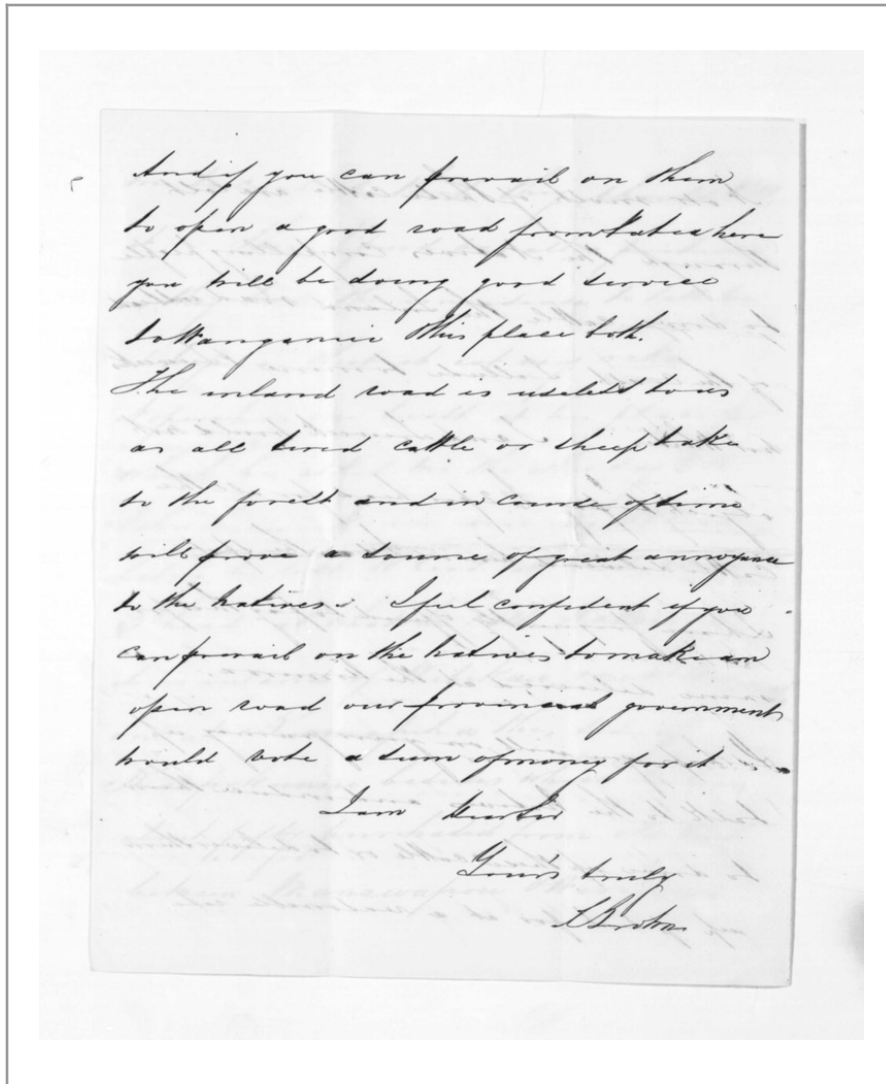 And if you can prevail on them
to open a good road from Patea here
you will be doing good service
to Wanganui & this place both.
The inland road is useless to us
as all tired cattle or sheep take
to the forest and in course of time
will prove a source of great annoyance
to the natives. I feel confident if you
can prevail on the natives to make an
open road our provincial government
would vote a sum of money for it.
I am Dear Sir
Your's truly
Brown